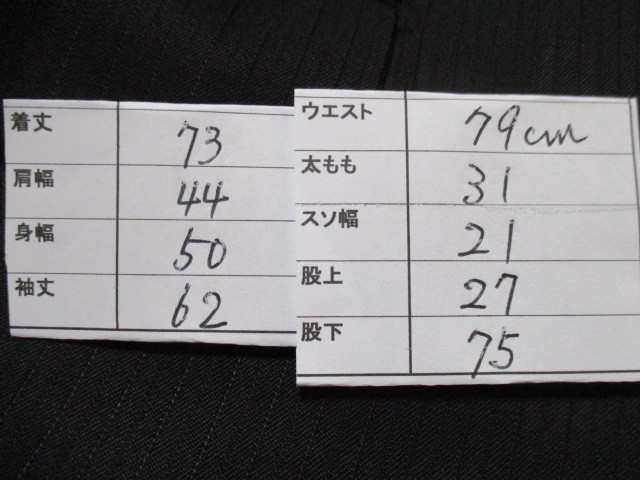 着丈 73
肩幅 44
身幅 50
袖丈 62
ウエスト 79cm
太もも 31
スソ幅 21
股上 27
股下 75